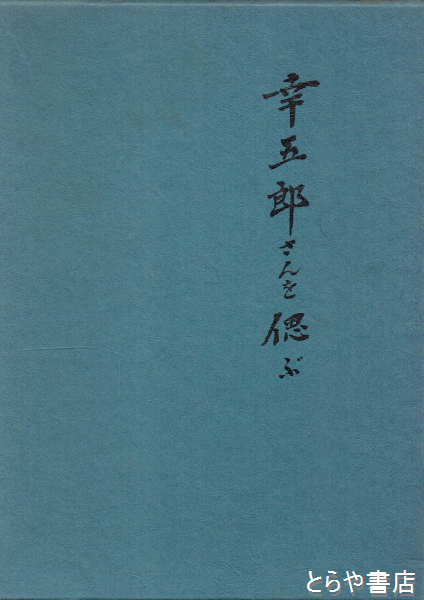 幸五郎さんを偲ぶ
とらや書店